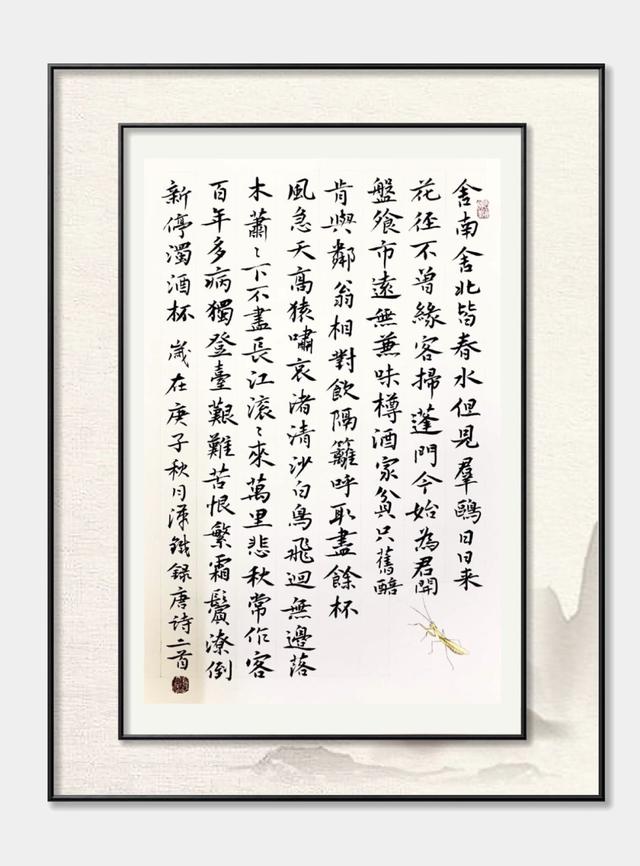 舍南舍北皆春水但見羣鷗日日来
花径不曾緣客掃蓬門今始為君開
盤飧市遠無蒹味樽酒家貧只舊醅
肯與鄰翁相對飲隔籬呼取盡餘杯
風急天高猿嘯哀渚清沙白鳥飛迴無邊落
木蕭〻下不盡長江滾〻來萬里悲秋常作客
百年多病獨登臺艱難苦恨繁霜鬢潦倒
新停濁酒杯 歲在庚子秋月鐵録唐诗二首